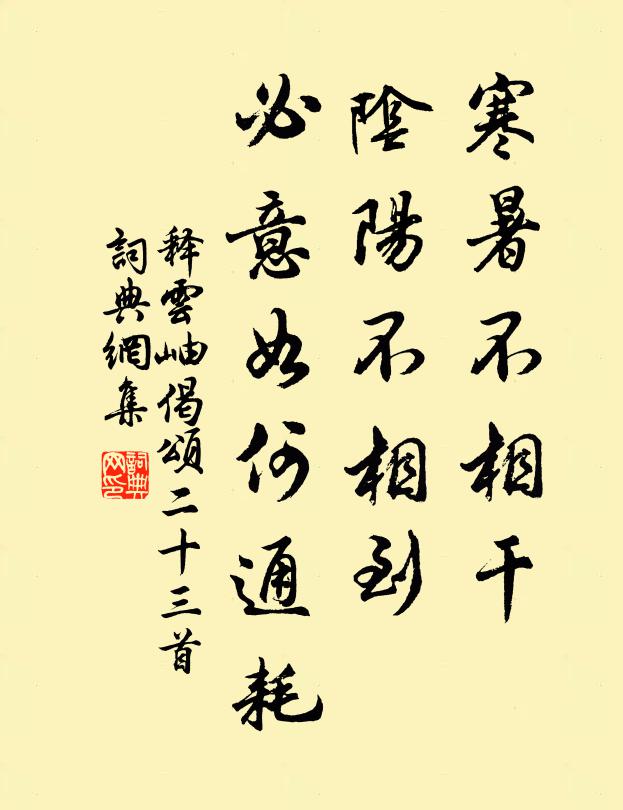 寒暑不相干
陰陽不相到
必意如何通耗
释雲岫偈頌二十三首
詞典網集
詞典网印